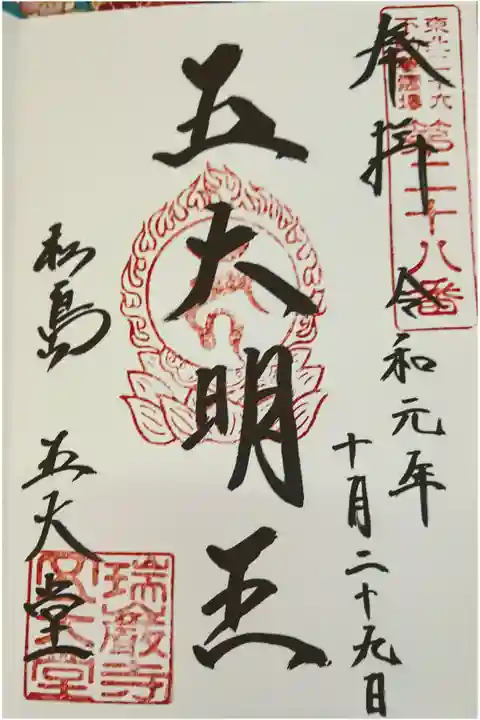 奉拝
東北三十六
不動尊霊場
第二十八番
令和元年
十月二十九日
五大明王
松島
五大堂
瑞巌寺
五大堂